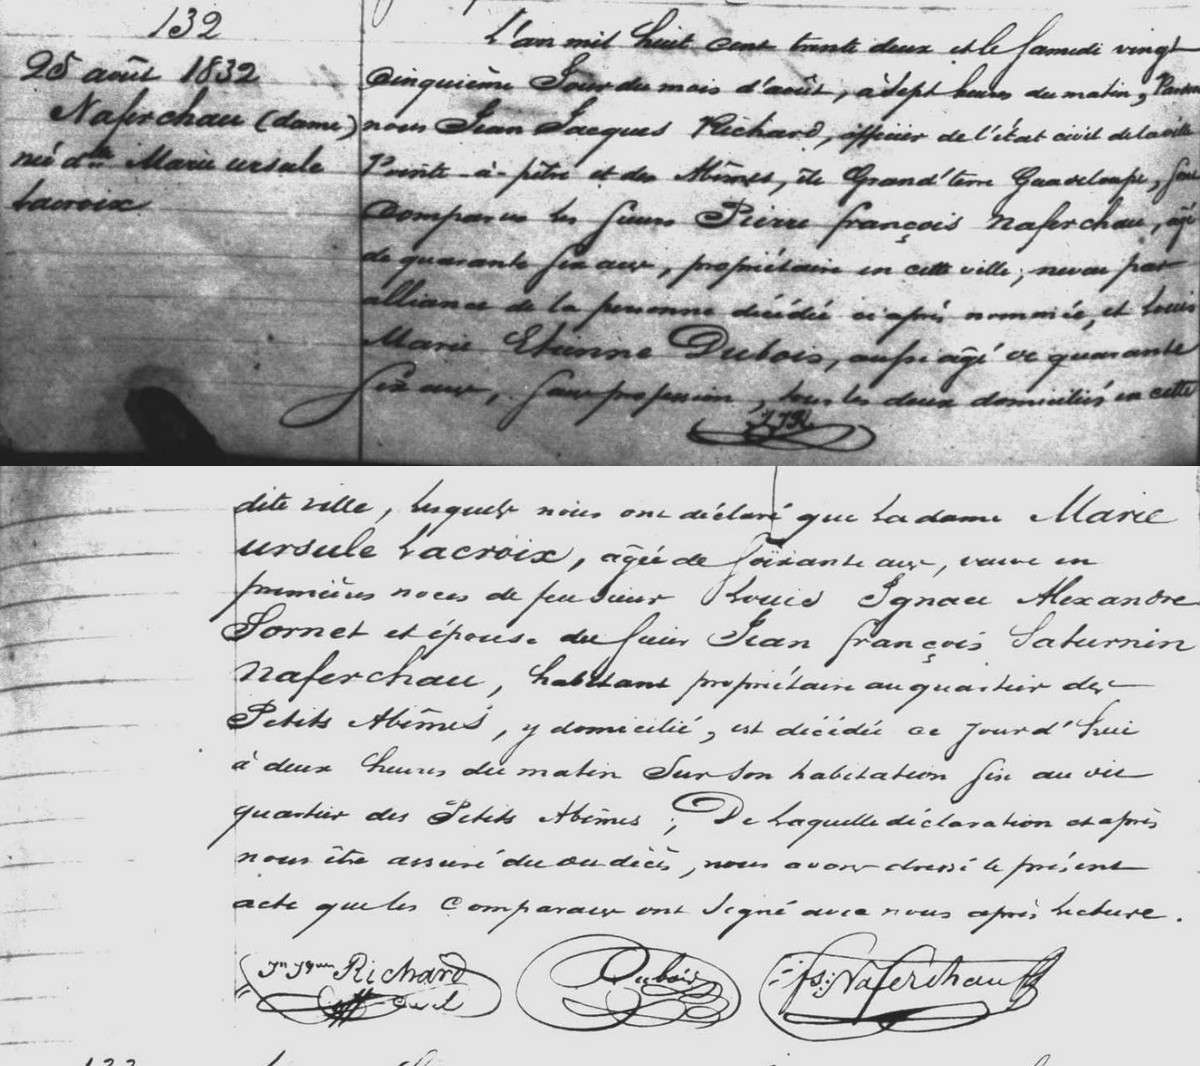 132
25 août 1832
Naferchau (dame)
née dlle Marie ursule
Lacroix
L'an mil huit cent trente deux et le Samedi vingt
cinquième Jour du mois d'août, à Sept heures du matin, Pardevant
nous Jean Jacques Richard, officier de l'état civil de la ville
Pointe-à-pître et des Abîmes, île Grand'terre Guadeloupe, sont
comparus les sieurs Pierre françois Naferchau, âgé
de quarante six ans, propriétaire en cette ville, neveu par
alliance de la personne décédée ci après nommée, et Louis
Marie Etienne Dubois, aussi âgé de quarante
six ans, sans profession, tous les deux domiciliés en cette
JJR
dite ville, lesquels nous ont déclaré que La dame Marie
ursule Lacroix, âgée de soixante ans, veuve en
premières noces de feu sieur Louis Ignace Alexandre
Sornet et épouse du sieur Jean françois Saturnin
Naferchau, habitant propriétaire au quartier des
Petits Abîmes, y domicilié, est décédée ce jourd'hui
à deux heures du matin Sur Son habitation sise au dit
quartier des Petits Abîmes; De laquelle déclaration et après
nous être assuré du dit décès, nous avons dressé le présent
acte que les Comparans ont Signé avec nous après lecture.
Jn Jques Richard
Dubois
fs: Naferchau
133